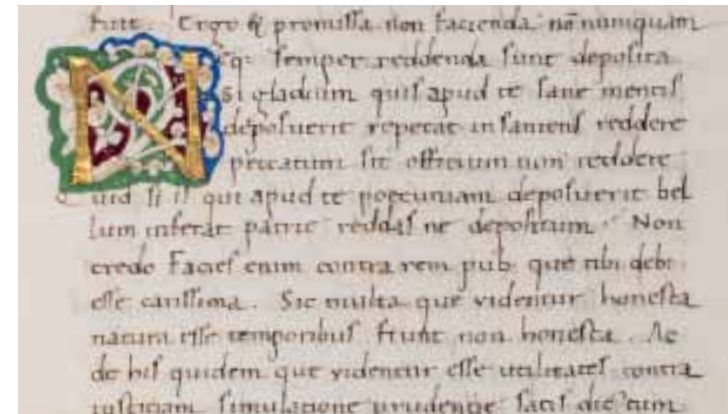 fiunt. Ergo & promissa non facienda nōnumquam
Neq; semper reddenda sunt deposita
Si gladium quis apud te sane mentis
deposuerit repetat insaniens reddere
peccatum sit officium non reddere
Quid si is qui apud te poecuniam deposuerit bel
lum inferat patrie reddas ne depositum. Non
credo Facies enim contra rem pub. que tibi debet
esse carissima. Sic multa que videntur honesta
natura esse temporibus fiunt non honesta. Ac
de his quidem que videntur esse utilitates contra
iusticiam simulatione prudentie satis dictum